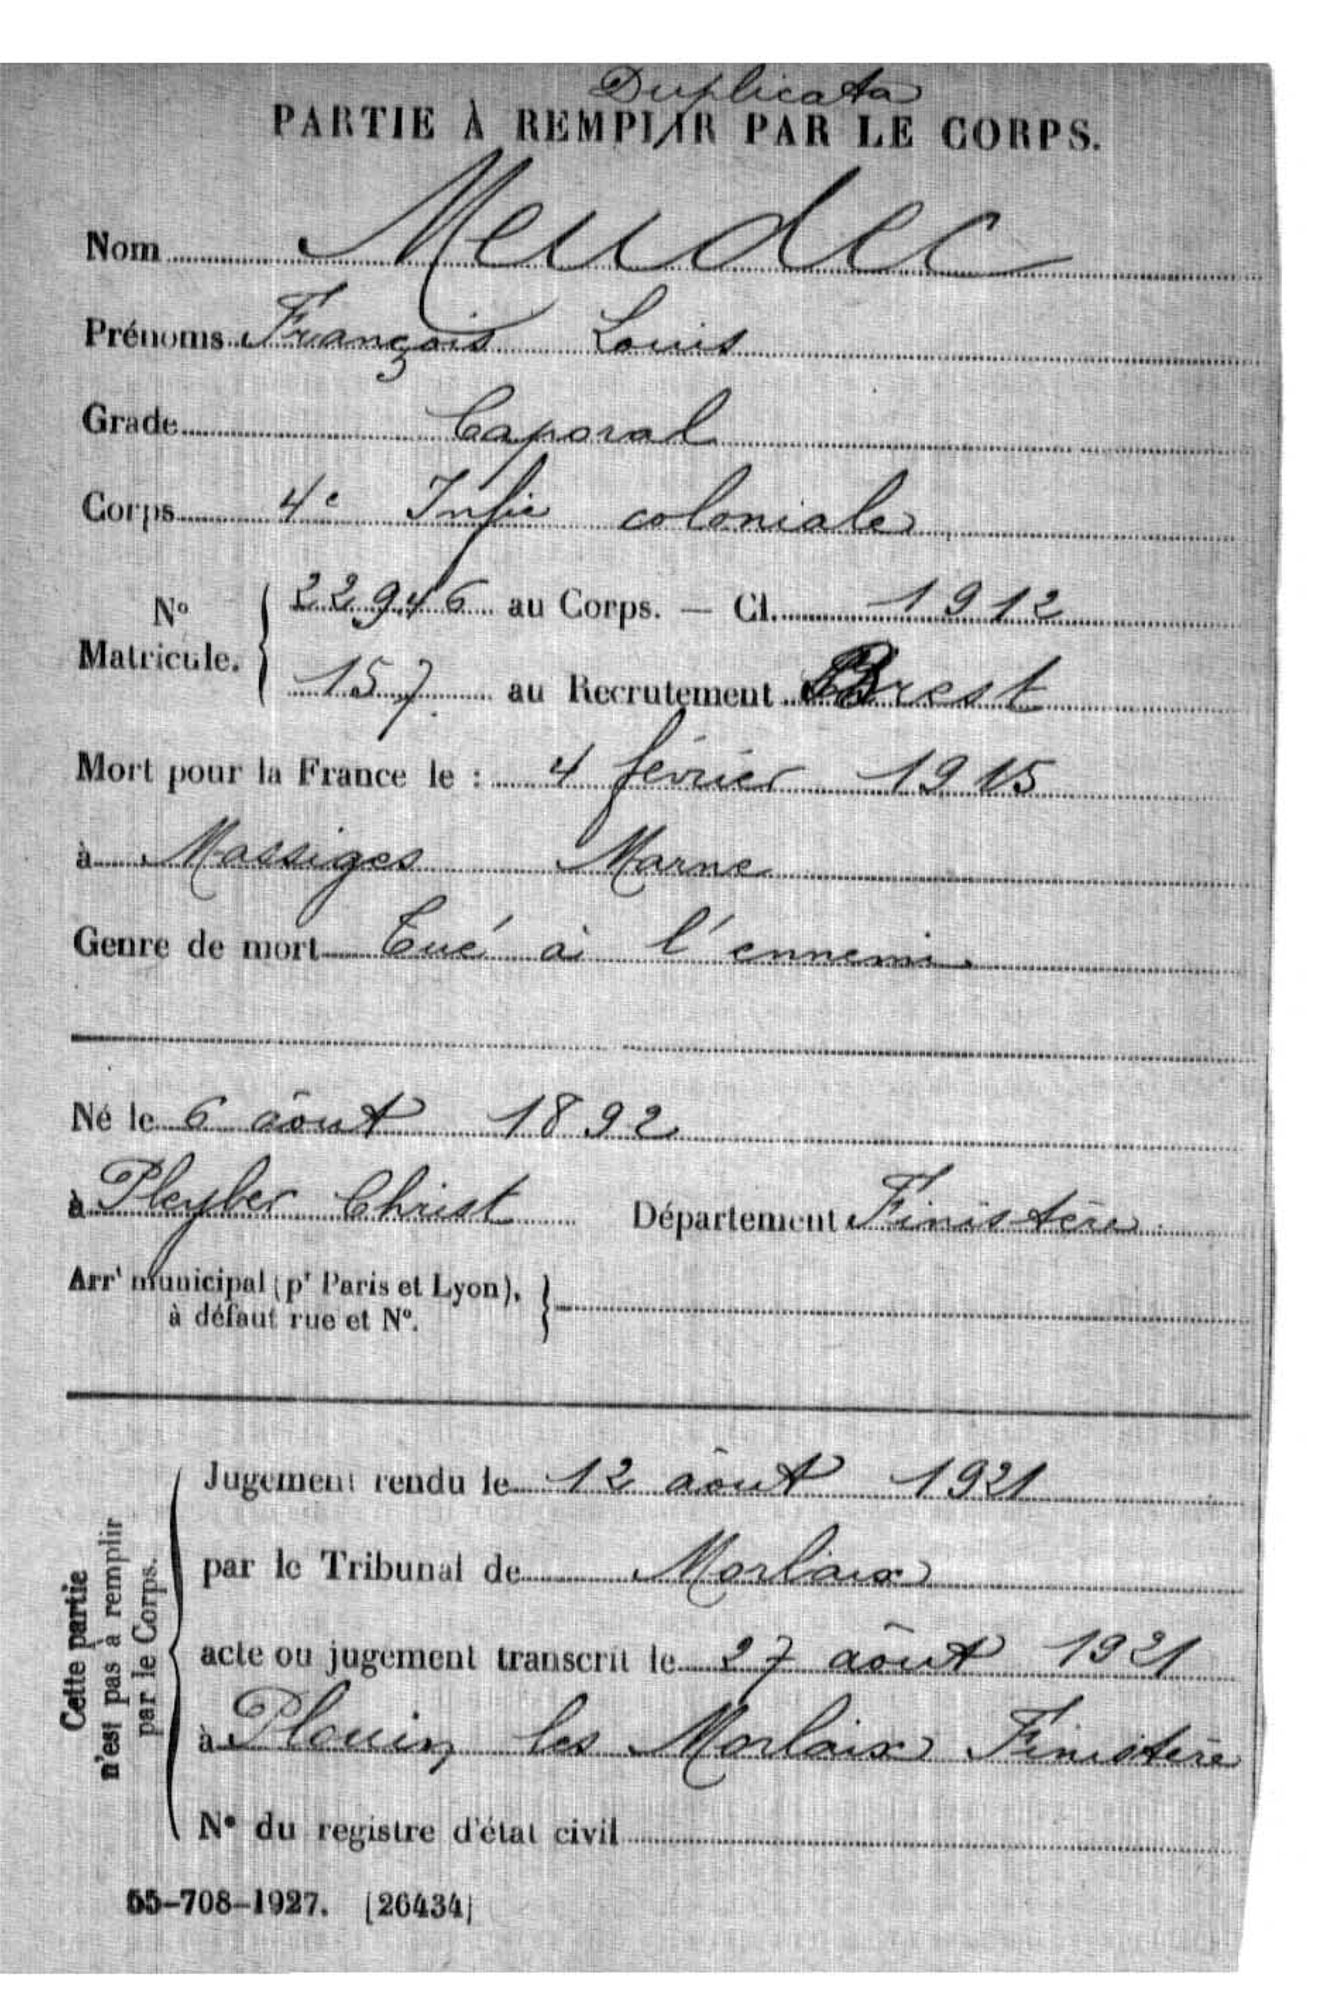 Duplicata
PARTIE À REMPLIR PAR LE CORPS.
Nom Meudec
Prénoms François Louis
Grade Caporal
Corps 4e Infie coloniale
No Matricule. 22946 au Corps. — Cl. 1912
157 au Recrutement Brest
Mort pour la France le : 4 février 1915
à Massiges Marne
Genre de mort Tué à l'ennemi
Né le 6 aôut 1892
à Pleyber Christ Département Finistère
Arrt municipal (pr Paris et Lyon),
à défaut rue et No.
Cette partie
n'est pas à remplir
par le Corps.
Jugement rendu le 12 aôut 1921
par le Tribunal de Morlaix
acte ou jugement transcrit le 27 aôut 1921
à Plouin les Morlaix Finistère
No du registre d'état civil
55-708-1927. [26434]